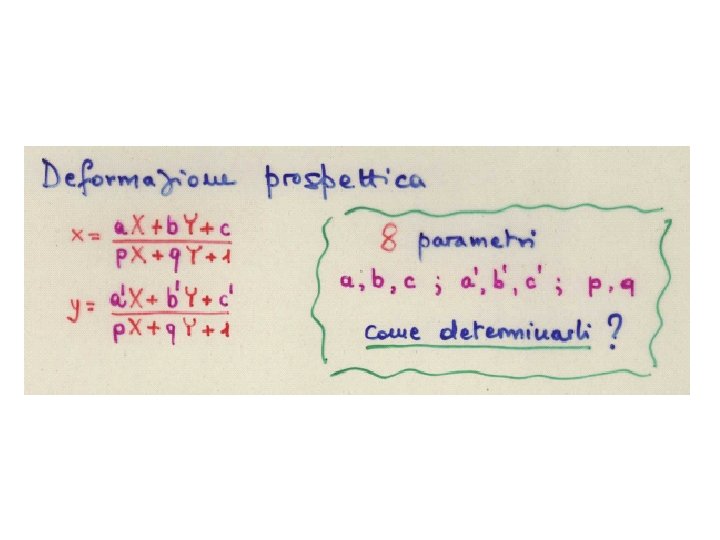 Deformazione prospettica
x = aX + bY + c / pX + qY + 1
y = a'X + b'Y + c' / pX + qY + 1
8 parametri
a, b, c ; a', b', c' ; p, q
come determinarli ?